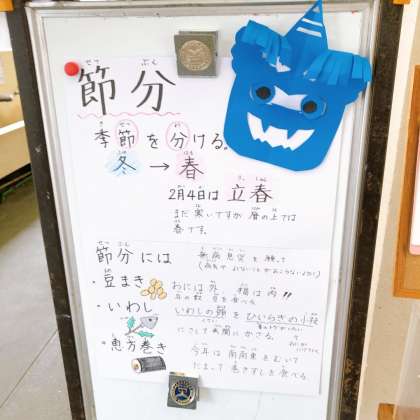 節分
せつ ぶん
季節を分ける。
冬 → 春
2月4日は 立春
まだ 寒いですが 暦の上では
春です。
節分には
無病息災を 願って
・豆まき
おには 外 福は 内 !!
年の数 豆を食べる
・いわし
いわしの頭を ひいらぎの小枝
にさして 玄関に かざる。
・恵方巻き
今年は 南南東を むいて
だまって 巻きずしを 食べる。